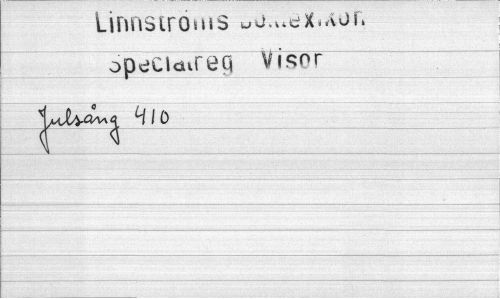 Linnströms Boklexikon
Specialreg Visor
Julsång 410